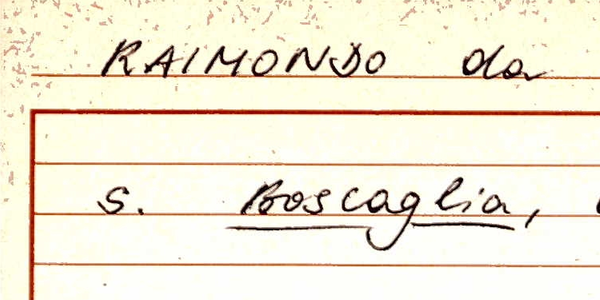 RAIMONDO da
s. Boscaglia,